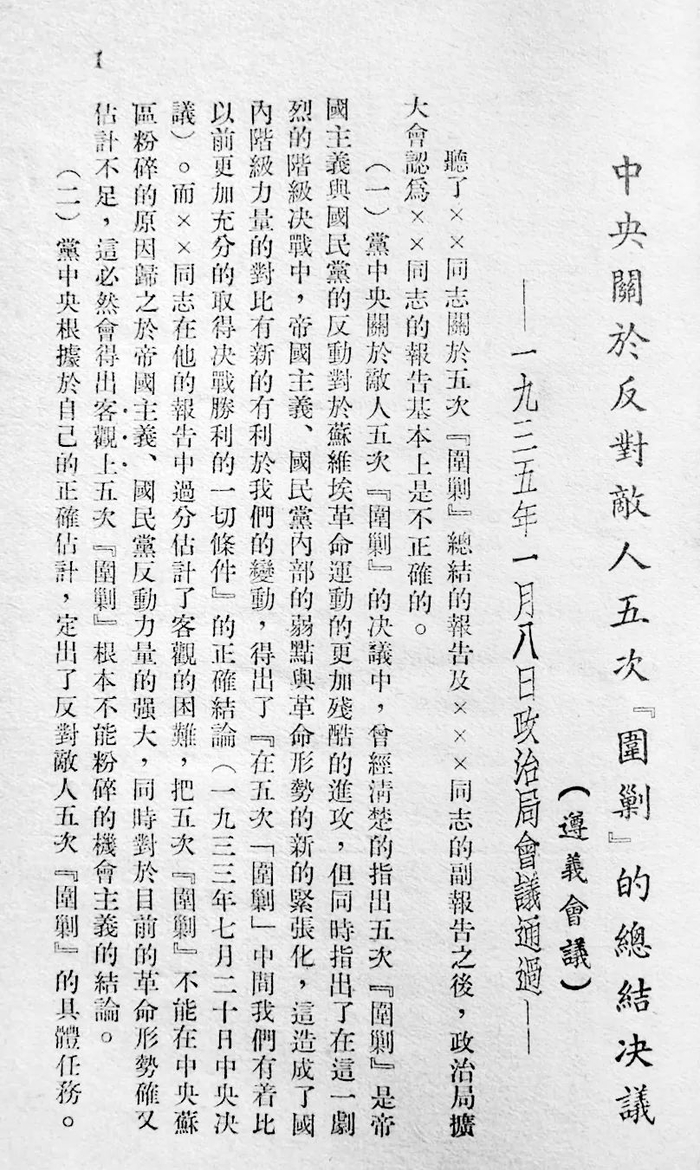 中央關於反對敵人五次『圍剿』的總結決議
(遵義會議)
——一九三五年一月八日政治局會議通過——
聽了××同志關於五次『圍剿』總結的報告及×××同志的副報告之後，政治局擴
大會認爲××同志的報告基本上是不正確的。
(一)黨中央關於敵人五次『圍剿』的決議中，曾經淸楚的指出五次『圍剿』是帝
國主義與國民黨的反動對於蘇維埃革命運動的更加殘酷的進攻，但同時指出了在這一劇
烈的階級決戰中，帝國主義、國民黨內部的弱點與革命形勢的新的緊張化，這造成了國
內階級力量的對比有新的有利於我們的變動，得出了『在五次「圍剿」中間我們有着比
以前更加充分的取得決戰勝利的一切條件』的正確結論(一九三三年七月二十日中央決
議)。而××同志在他的報告中過分估計了客觀的困難，把五次『圍剿』不能在中央蘇
區粉碎的原因歸之於帝國主義、國民黨反動力量的强大，同時對於目前的革命形勢確又
估計不足，這必然會得出客觀上五次『圍剿』根本不能粉碎的機會主義的結論。
(二)黨中央根據於自己的正確估計，定出了反對敵人五次『圍剿』的具體任務。
1